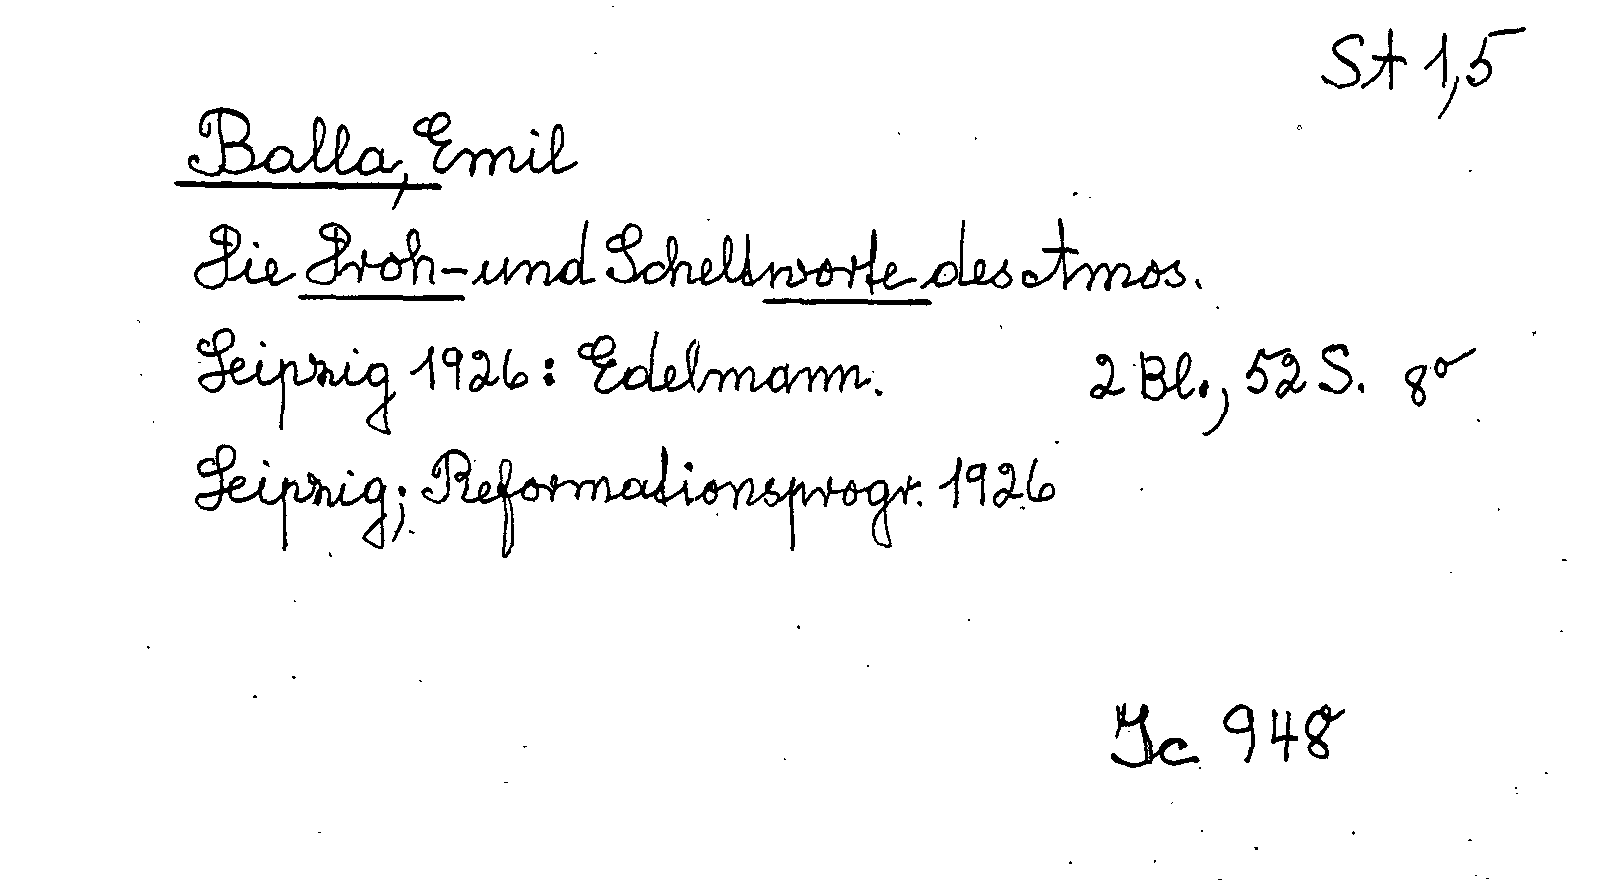 St 1,5
Balla, Emil
Die Droh- und Scheltworte des Amos.
Leipzig 1926: Edelmann. 2 Bl., 52 S. 8°
Leipzig; Reformationsprogr. 1926
Ic 948